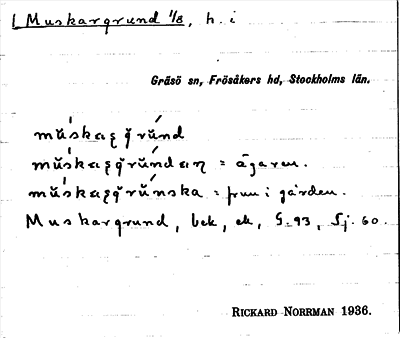 Muskargrund 1/8, h. i
Gräsö sn, Frösåkers hd, Stockholms län.
= ägaren.
= frun i gården.
Muskargrund, bek, ek, G. 93, Sj. 60.
RICKARD NORRMAN 1936.